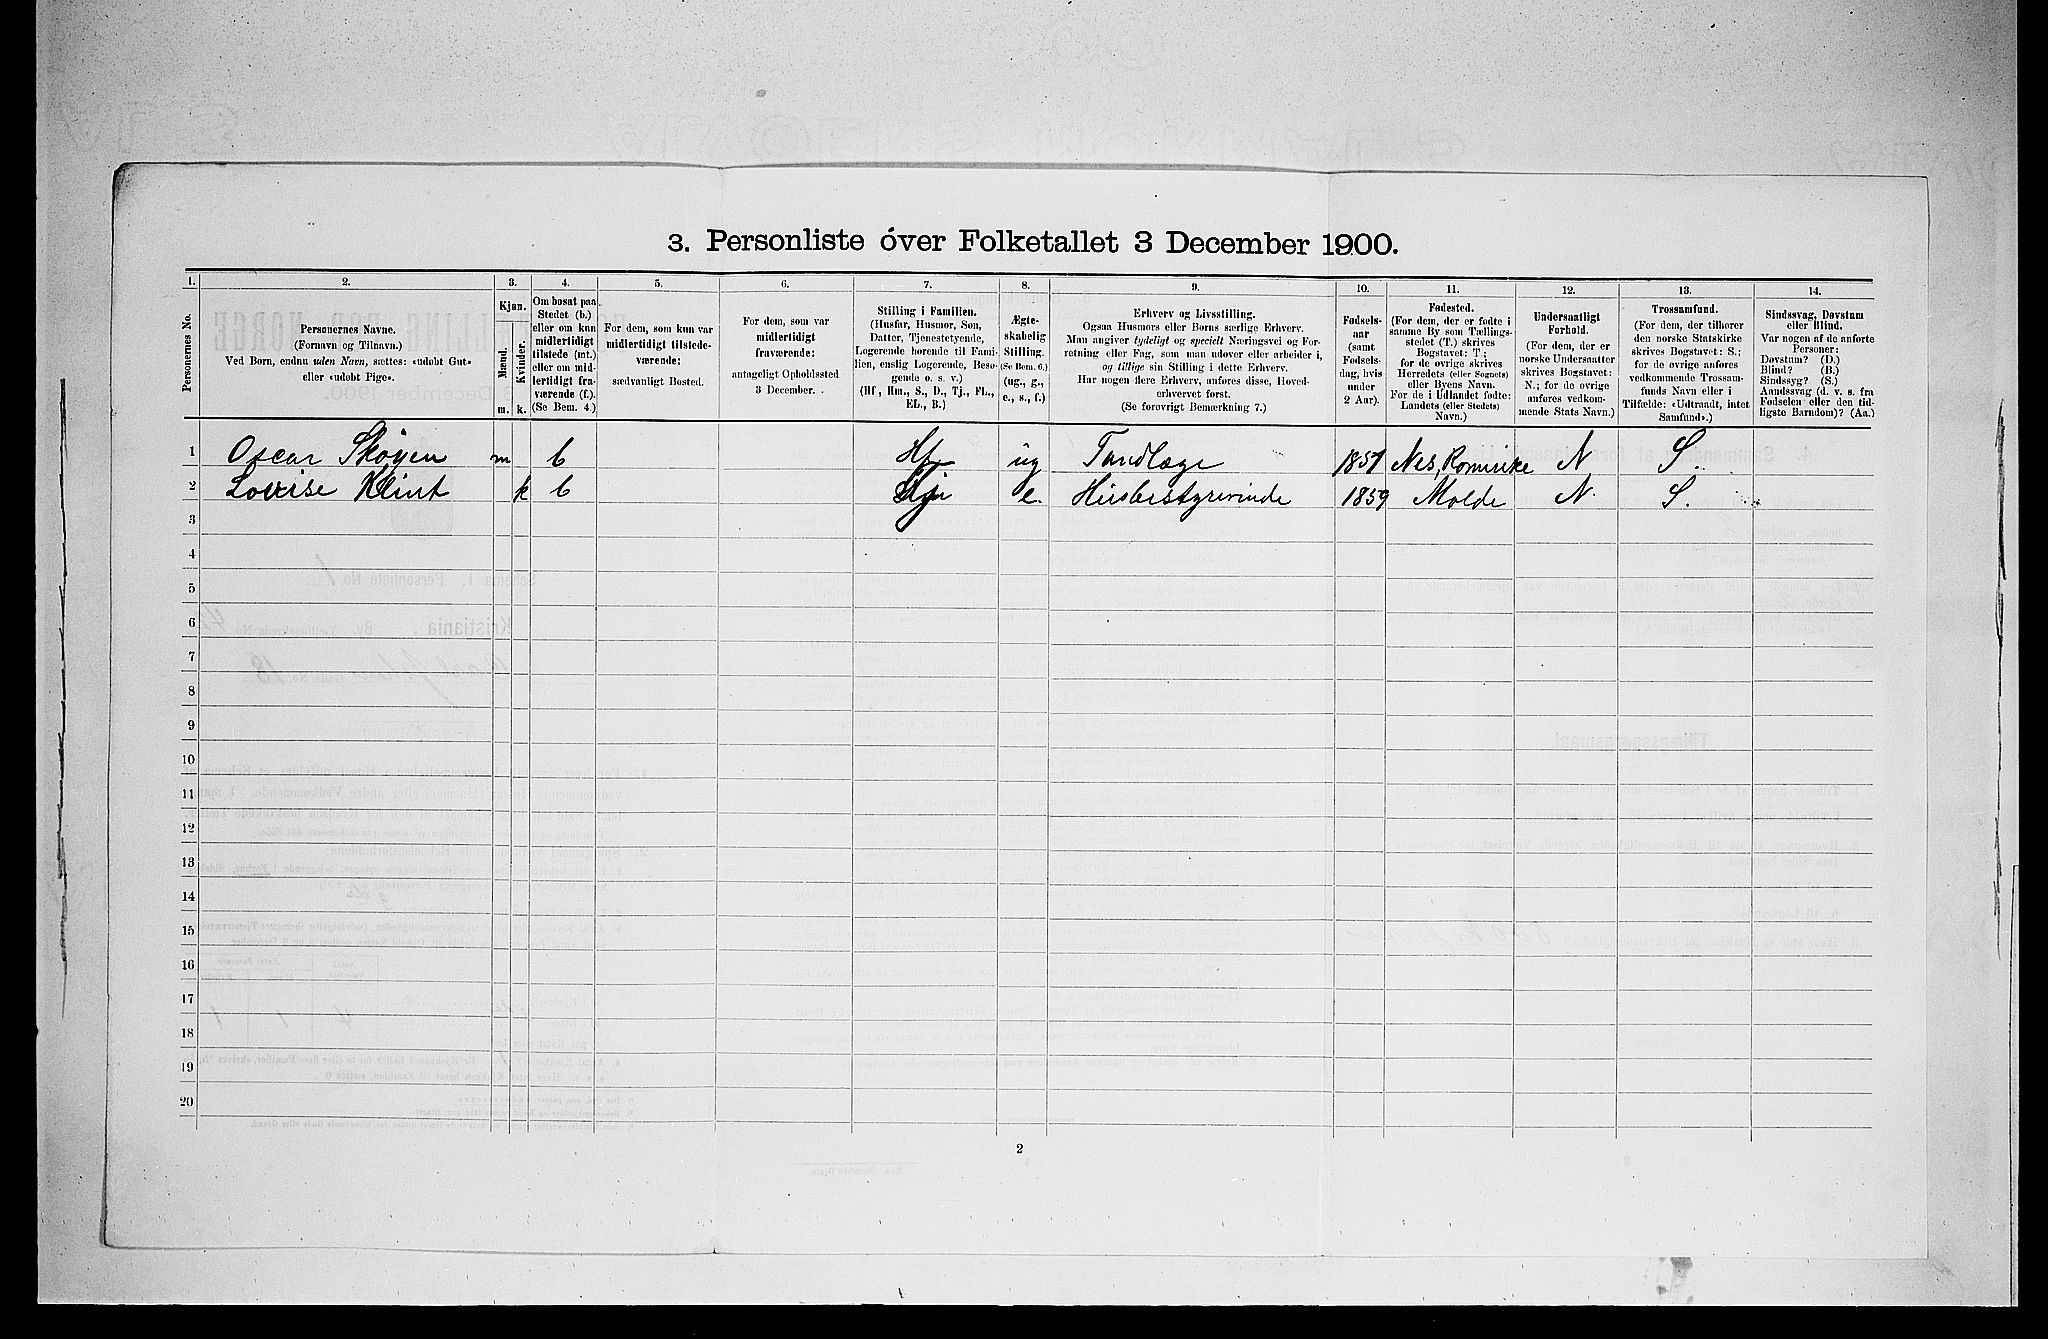 3. Personliste over Folketallet 3 December 1900.
1.
2.
3.
4.
5.
6.
7.
8.
9.
10.
11.
12.
13.
14.
Personernes No.
Personernes Navne.
(Fornavn og Tilnavn.)
Ved Børn, endnu uden Navn, sættes: «udøbt Gut»
eller «udøbt Pige».
Kjøn.
Mænd.
Kvinder.
m.
k.
Om bosat paa
Stedet (b.)
eller om kun
midlertidigt
tilstede (mt.)
eller om mid-
lertidigt fra-
værende (f.).
(Se Bem. 4.)
For dem, som kun var
midlertidigt tilstede-
værende:
sædvanligt Bosted.
For dem, som var
midlertidigt
fraværende:
antageligt Opholdssted
3 December.
Stilling i Familien.
(Husfar, Husmor, Søn,
Datter, Tjenestetyende,
Logerende hørende til Fami-
lien, enslig Logerende, Besø-
gende o. s. v.)
(Hf, Hm., S., D., Tj., FL.,
EL., B.)
Ægte-
skabelig
Stilling.
(Se Bem. 6.)
(ug., g.,
e., s., f.)
Erhverv og Livsstilling.
Ogsaa Husmors eller Børns særlige Erhverv.
Man angiver tydeligt og specielt Næringsvei og For-
retning eller Fag, som man udøver eller arbeider i,
og tillige sin Stilling i dette Erhverv.
Har nogen flere Erhverv, anføres disse, Hoved-
erhvervet først.
(Se forøvrigt Bemærkning 7.)
Fødsels-
aar
(samt
Fødsels-
dag, hvis
under
2 Aar).
Fødested.
(For dem, der er fødte i
samme By som Tællings-
stedet (T.) skrives
Bogstavet: T.;
for de øvrige skrives
Herredets (eller Sognets)
eller Byens Navn.
For de i Udlandet fødte:
Landets (eller Stedets)
Navn.)
Undersaatligt
Forhold.
(For dem, der er
norske Undersaatter
skrives Bogstavet:
N.; for de øvrige
anføres vedkom-
mende Stats Navn.)
Trossamfund.
(For dem, der tilhører
den norske Statskirke
skrives Bogstavet: S.;
for de øvrige anføres
vedkommende Trossam-
funds Navn eller i
Tilfælde: «Udtraadt, intet
Samfund».)
Sindssvag, Døvstum
eller Blind.
Var nogen af de anførte
Personer:
Døvstum? (D.)
Blind? (B.)
Sindssyg? (S.)
Aandssvag (d. v. s. fra
Fødselen eller den tid-
ligste Barndom)? (Aa.)
1 Oscar Skøyen m b Hf ug Tandlæge 1857 Nes, Romerike N S.
2 Lovise Klint k b Tj e. Husbestyrerinde 1859 Molde N. S.
3
4
5
6
7
8
9
10
11
12
13
14
15
16
17
18
19
20
2